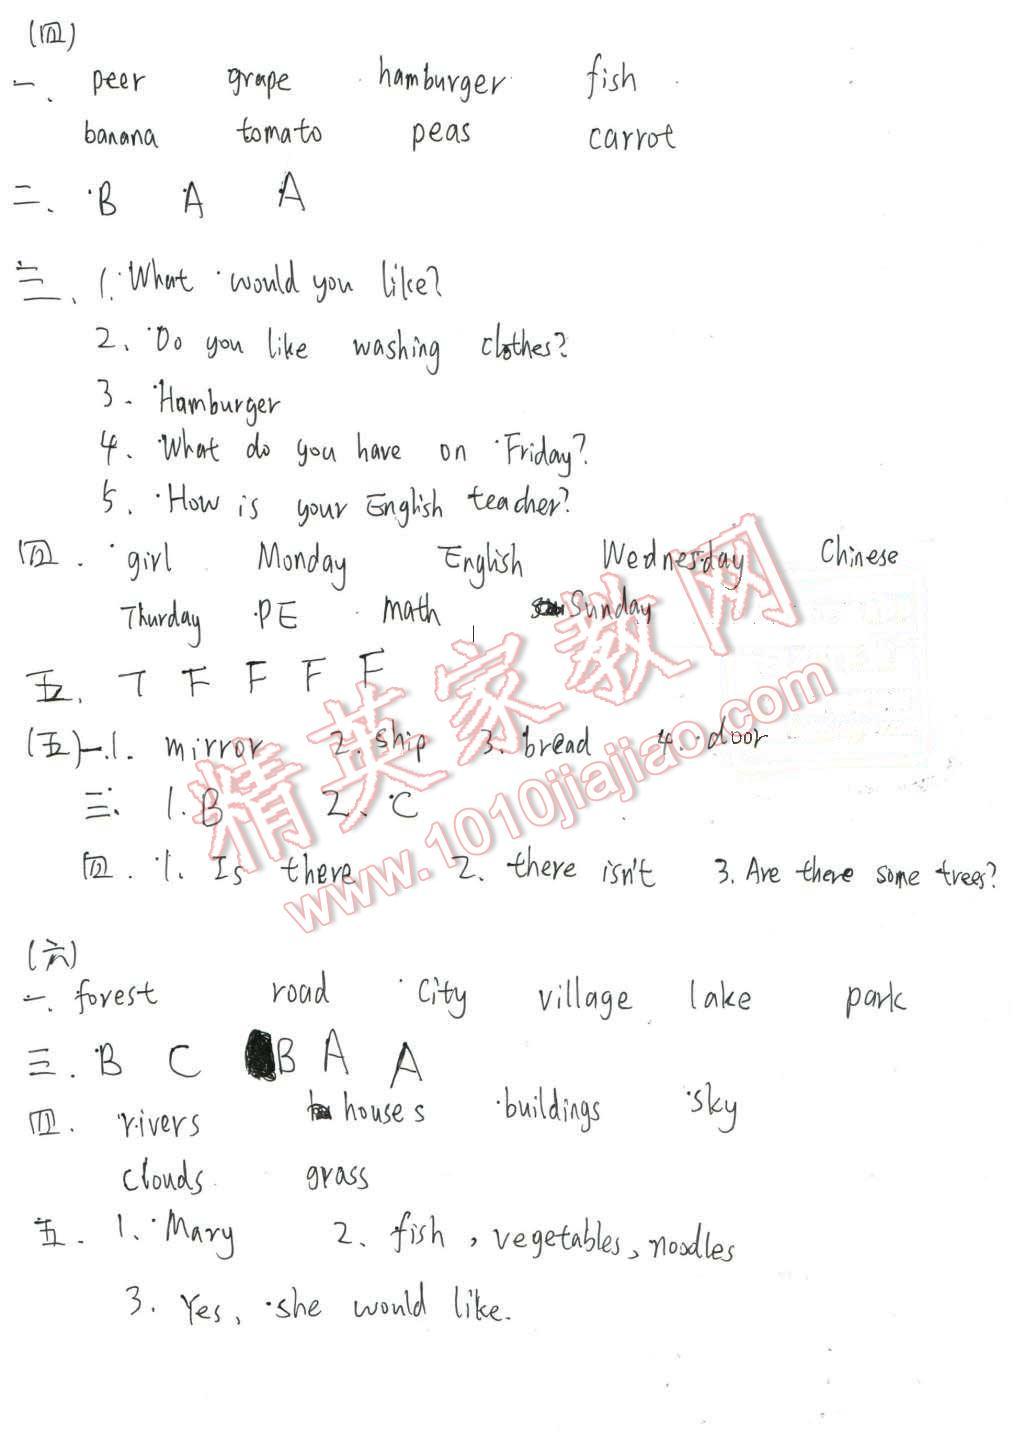 (四)
一、 peer grape hamburger fish
banana tomato peas carrot
二、 B A A
三、 1. What would you like?
2、 Do you like washing clothes?
3. Hamburger
4. What do you have on Friday?
5. How is your English teacher?
四. girl Monday English Wednesday Chinese
Thurday PE math Sunday
五、 T F F F F
(五)一.1. mirror 2. ship 3. bread 4. door
三、 1. B 2、 C
四. 1. Is there 2. there isn't 3. Are there some trees?
(六)
一、 forest road city village lake park
三. B C B A A
四. rivers houses buildings sky
clouds grass
五. 1. Mary 2. fish, vegetables, noodles
3. Yes, she would like.
精英家教网
www.1010jiajiao.com